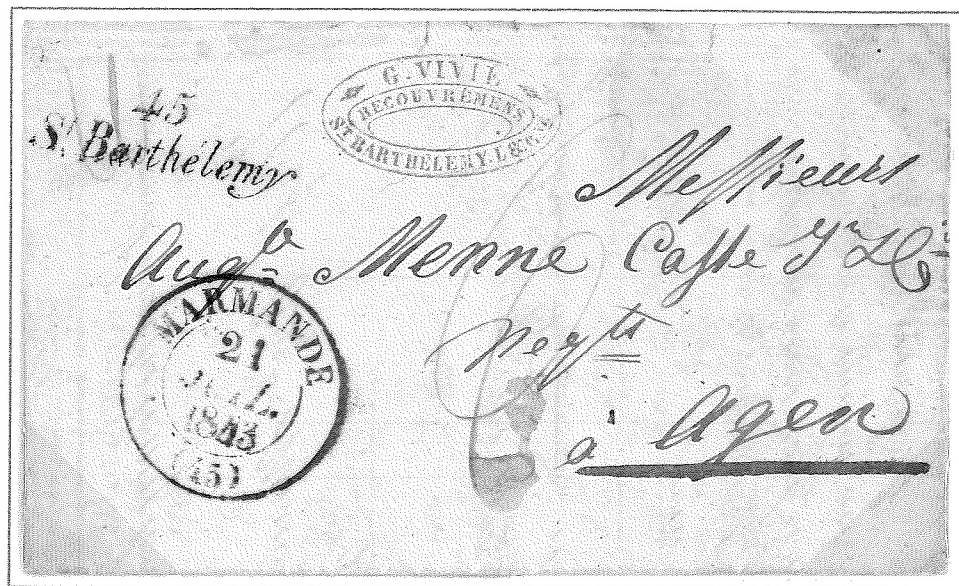 45
St Barthélemy
G. VIVIE
RECOUVREMENS
ST BARTHÉLEMY. L&G.
Messieurs
Augte Menne Casse Jne & Cie
Negts
à Agen
MARMANDE
21
JUIL.
1843
(45)